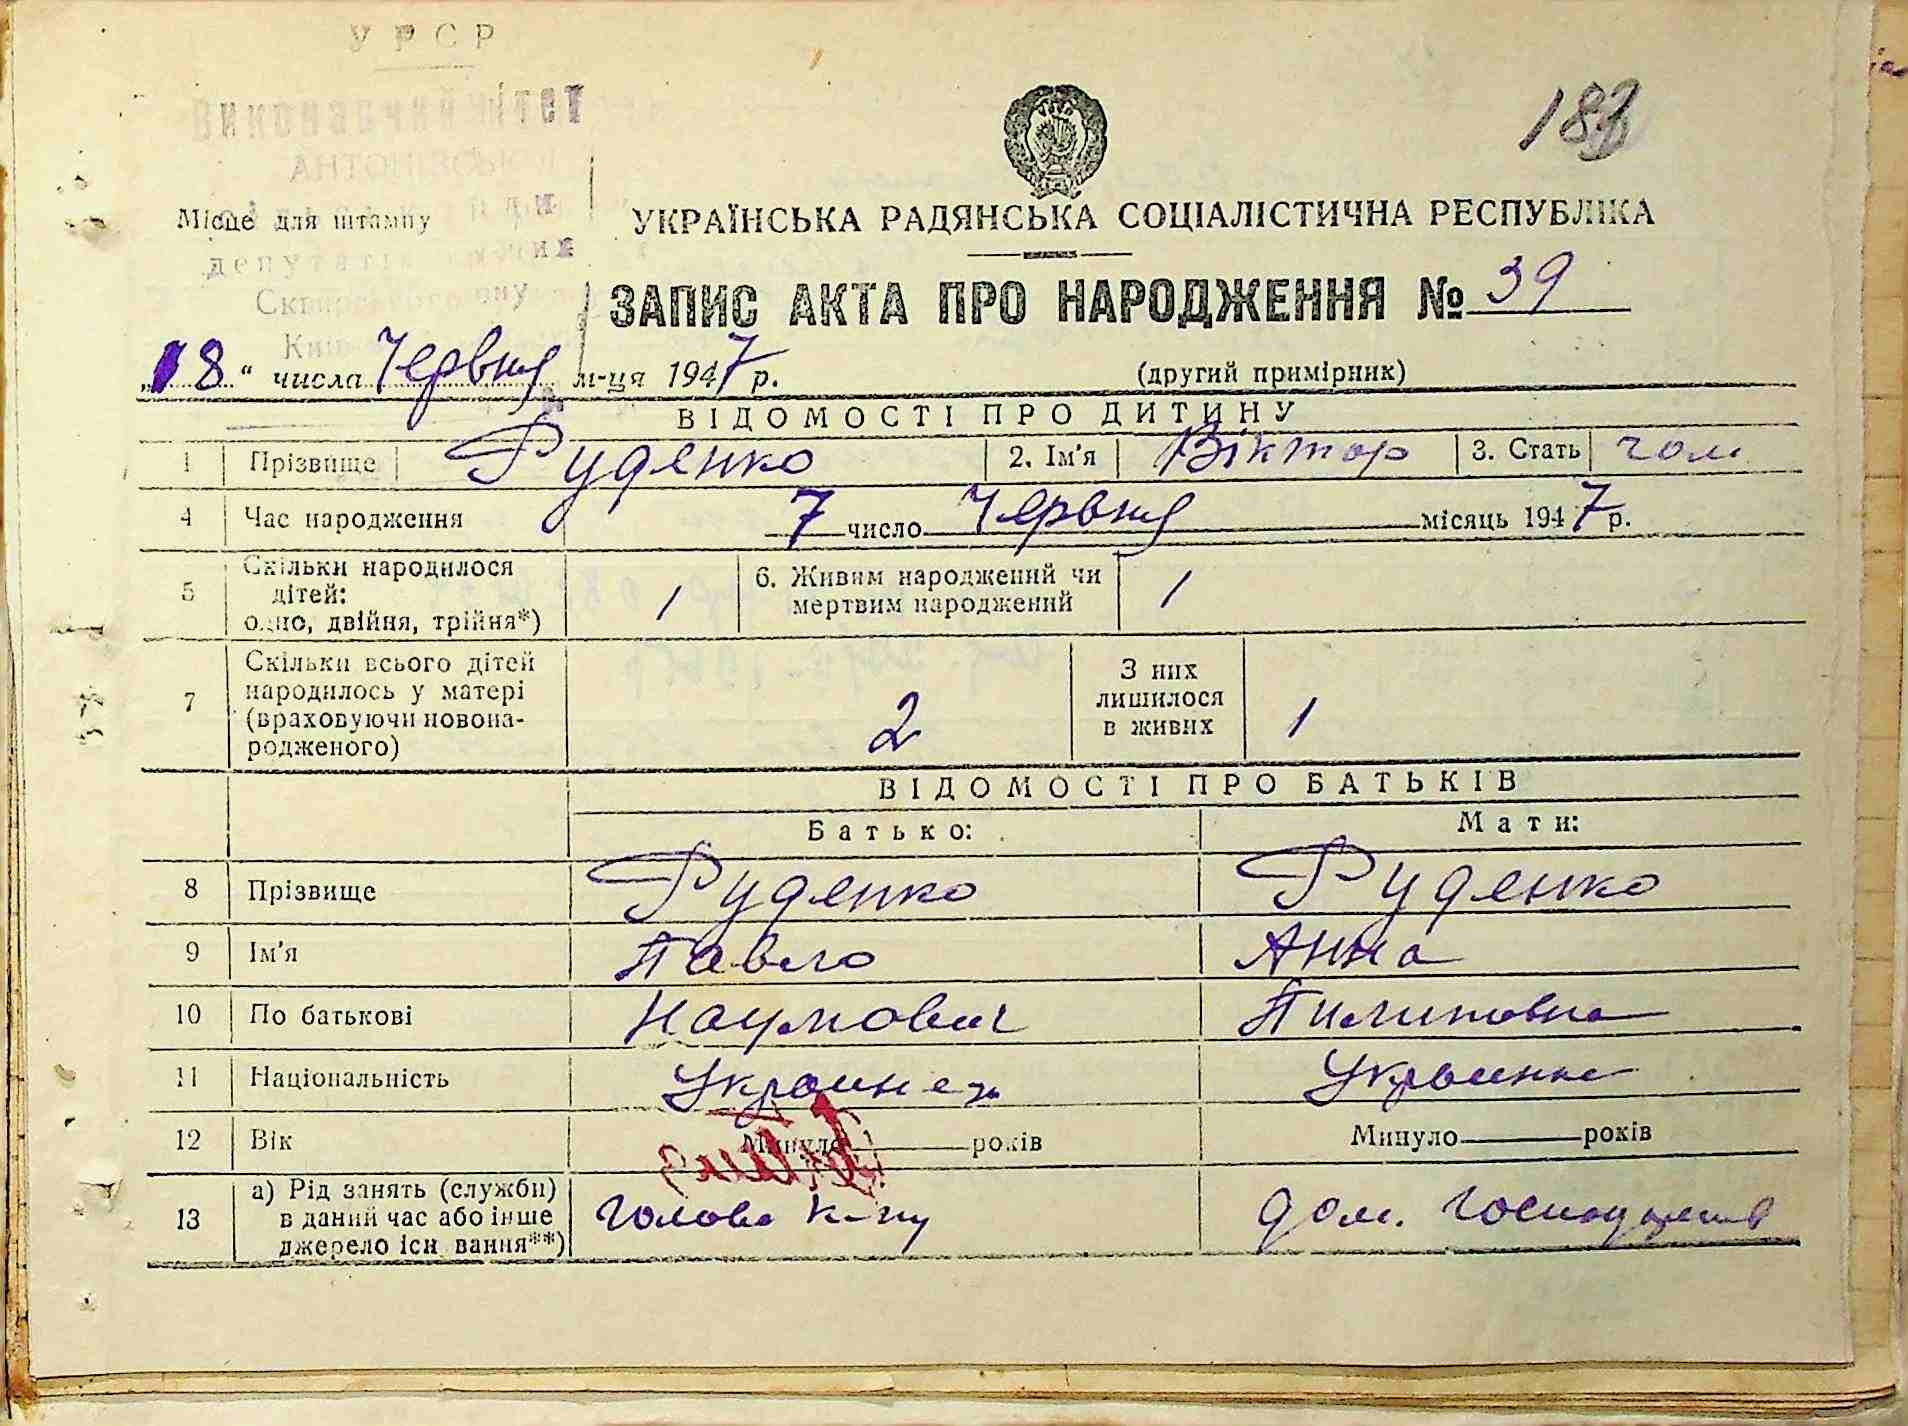 У Р С Р
Виконавчий комітет
АНТОНІВСЬКОЇ
183
Місце для штампу
депутатів трудящих
Сквирського району
УКРАЇНСЬКА РАДЯНСЬКА СОЦІАЛІСТИЧНА РЕСПУБЛІКА
ЗАПИС АКТА ПРО НАРОДЖЕННЯ № 39
„18" числа Червня м-ця 1947 р. (другий примірник)
ВІДОМОСТІ ПРО ДИТИНУ
1 Прізвище Руденко 2. Ім'я Віктор 3. Стать чол
4 Час народження 7 число Червня місяць 1947 р.
5 Скільки народилося дітей: одно, двійня, трійня*) 1 6. Живим народжений чи мертвим народжений 1
7 Скільки всього дітей народилось у матері (враховуючи новонародженого) 2 З них лишилося в живих 1
ВІДОМОСТІ ПРО БАТЬКІВ
Батько: Мати:
8 Прізвище Руденко Руденко
9 Ім'я Павло Анна
10 По батькові Наумович Пилиповна
11 Національність Украинец Украинка
12 Вік Минуло років Минуло років
13 а) Рід занять (служби) в даний час або інше джерело існування**) голова к-пу дом. господарств